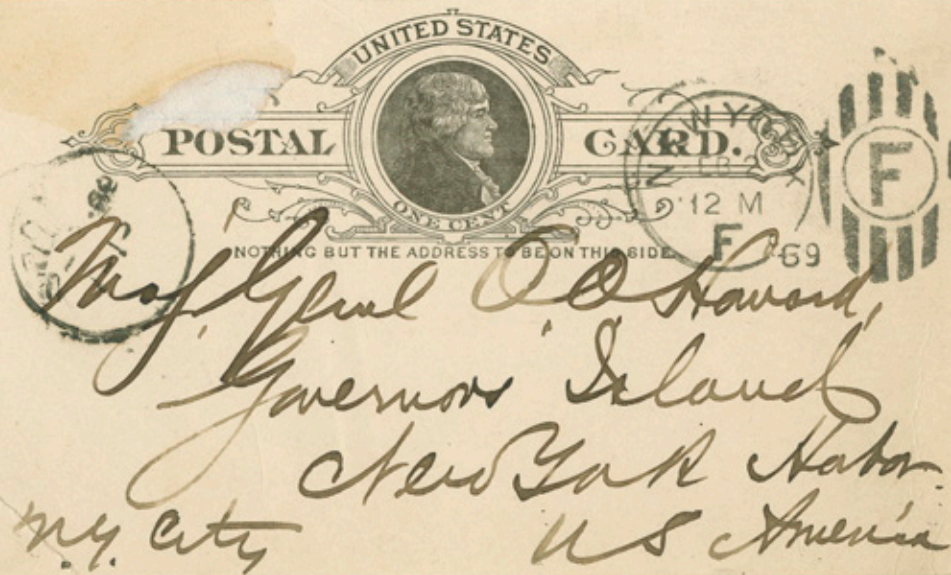 UNITED STATES
POSTAL CARD.
ONE CENT
NOTHING BUT THE ADDRESS TO BE ON THIS SIDE.
NEW YORK
12 M
F
F
89
Maj. Genl O. O. Howard,
Governors Island
New York Harbor.
N.Y. City
U S America